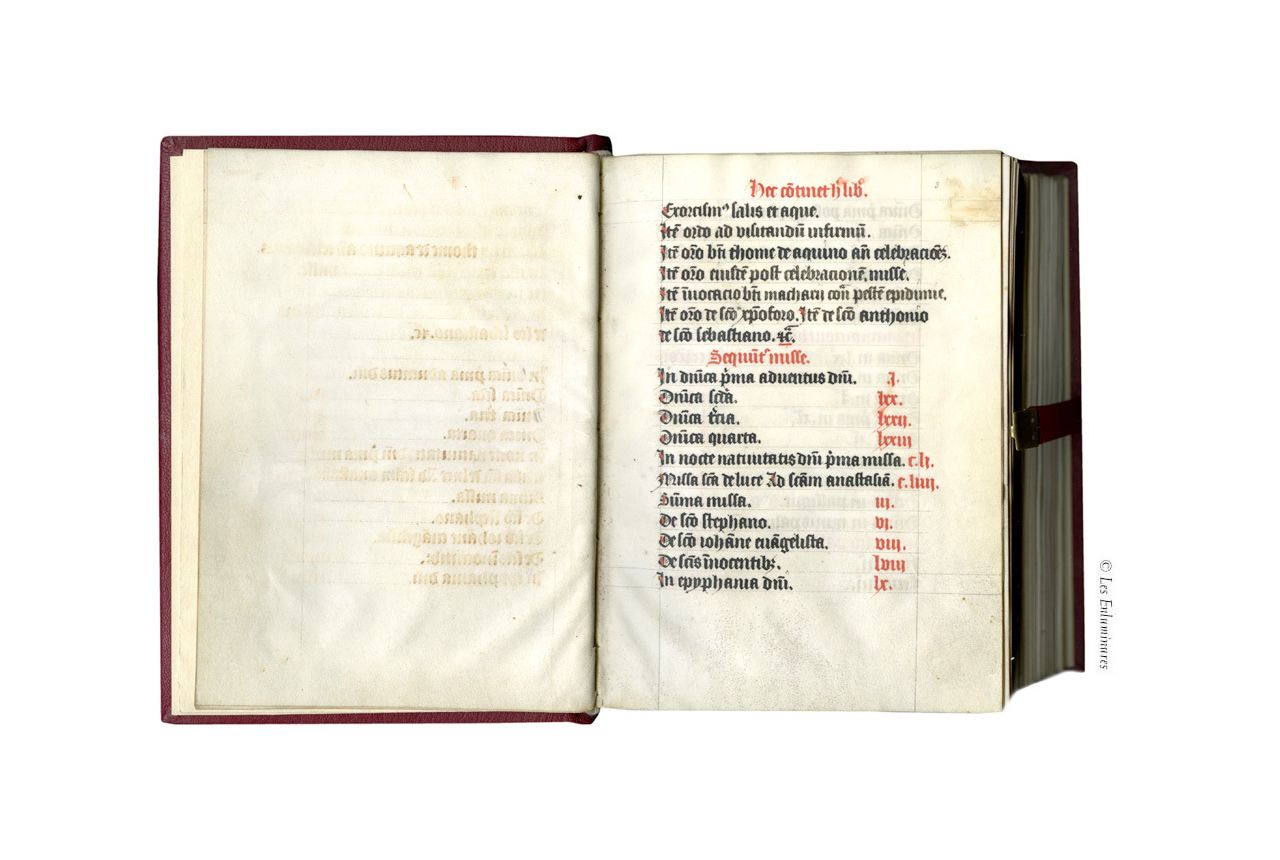 Hec cōtinet h̄ lib'.
3
Exorcism' salis et aque.
Itē ordo ad visitandū infirmū.
Itē or̄o bt̄i thome de aquino an̄ celebracion̄es.
Itē or̄o eiusdē post celebracionē misse.
Itē īuocacio bt̄i macharij cont̄ pestē epidimie.
Itē or̄o de sc̄o xp̄oforo. Itē de sc̄o anthonio
de sc̄o sebastiano. ⁊c̄.
Sequūt' misse.
In dn̄ica p̄ma aduentus dn̄i. j.
Dn̄ica sc̄da. lxx.
Dn̄ica t̄cia. lxxij.
Dn̄ica quarta. lxxiij
In nocte natiuitatis dn̄i p̄ma missa. c.lj.
Missa sc̄a de luce Ad sc̄am anastasiā. c.liiij.
Sūma missa. iij.
De sc̄o stephano. vj.
De sc̄o iohāne euāgelista. viij.
De sc̄is īnocentibꝫ. lviij
In epyphania dn̄i. lx.
© Les Enluminures